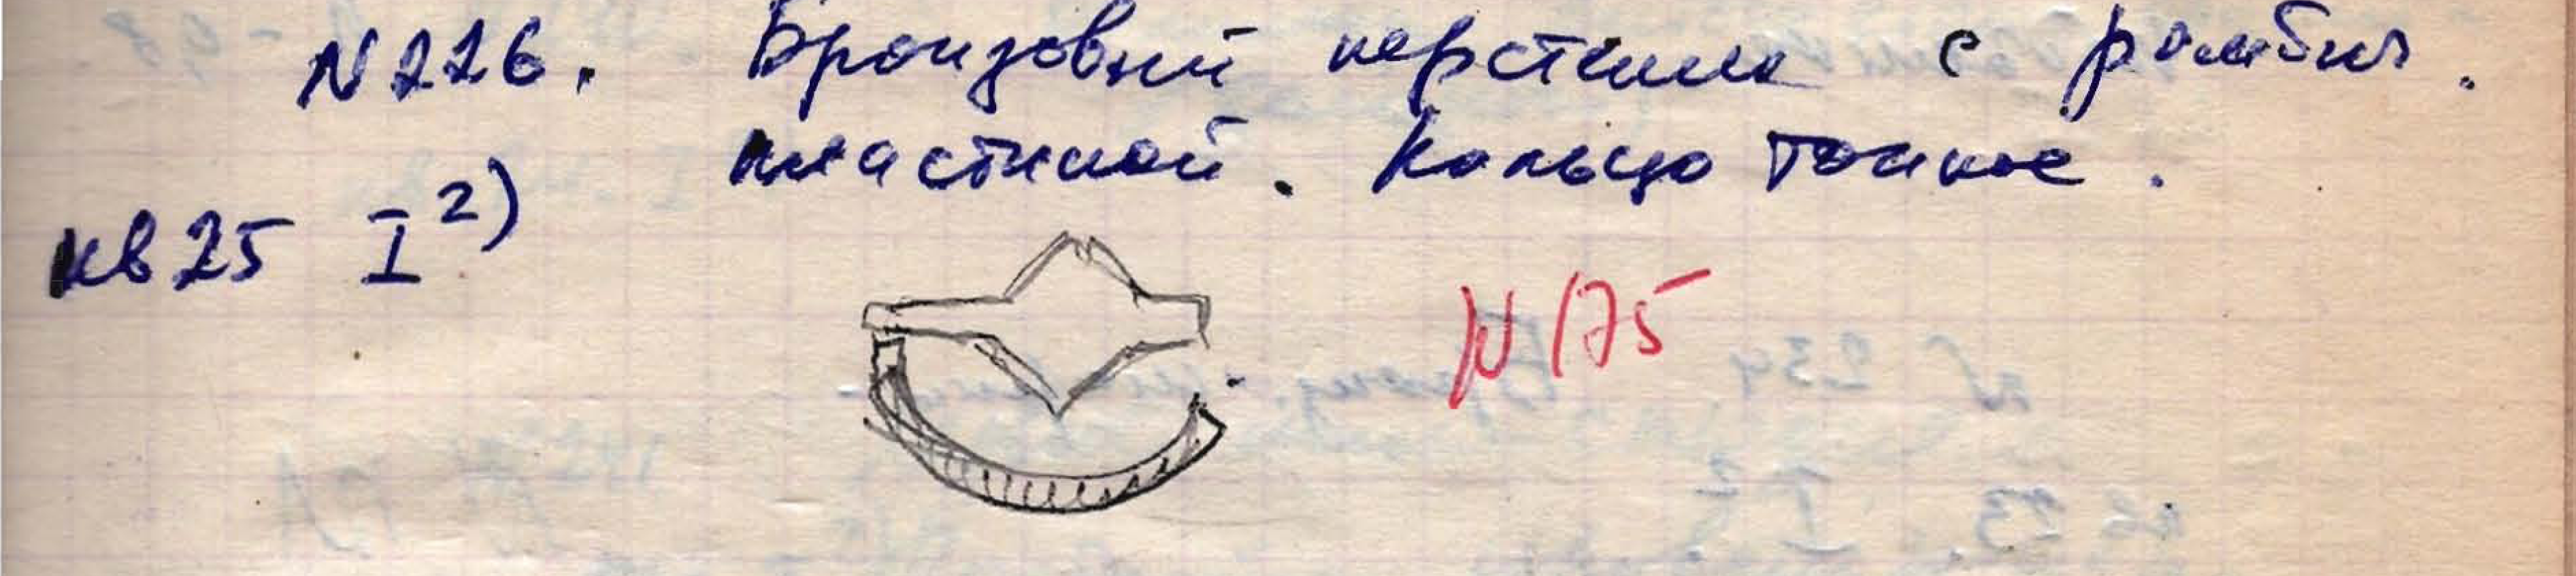 N 226. Бронзовый перстенек с ромбич.
пластиной. Кольцо тонкое.
кв 25 I 2)
N 175